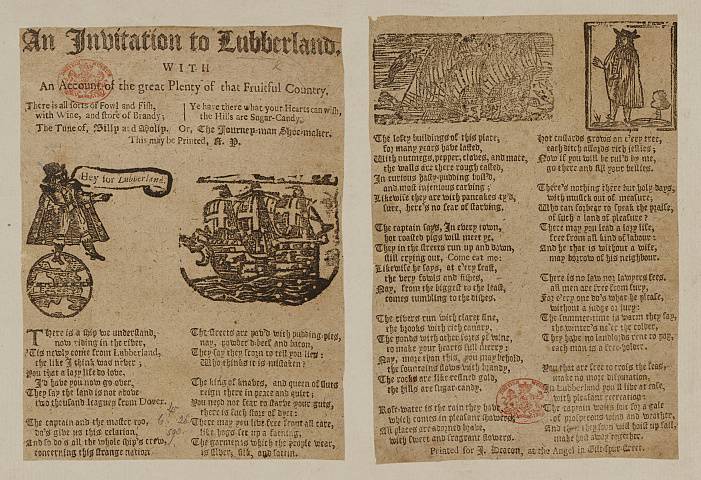 An Invitation to Lubberland,
WITH
An Account of the great Plenty of that Fruitful Country.
There is all sorts of Fowl and Fish,
with Wine, and store of Brandy;
Ye have there what your Hearts can wish,
the Hills are Sugar-Candy.
The Tune of, Billy and Molly, Or, The Journey-man Shoe-maker.
This may be Printed, R. P.
Hey for Lubberland.
There is a ship we understand,
now riding in the river,
'Tis newly come from Lubberland,
the like I think was never;
You that a lazy life do love,
I'd have you now go over,
They say the land is not above
two thousand leagues from Dover.
The captain and the master too,
do's give us this relation,
And so do's all the whole ship's crew,
concerning this strange nation.
The streets are pav'd with pudding-pies,
nay, powder'd-beef and bacon,
They say they scorn to tell you lies;
Who thinks it is mistaken?
The king of knaves, and queen of sluts
reign there in peace and quiet;
You need not fear to starve your guts,
there is such store of dyet:
There may you live free from all care,
like hogs set up a fatning,
The garments which the people wear,
is silver, silk, and sattin.
The lofty buildings of this place,
for many years have lasted,
With nutmegs, pepper, cloves, and mace,
the walls are there rough-casted,
In curious hasty-pudding boil'd,
and most ingenious carving;
Likewise they are with pancakes ty'd,
sure, here's no fear of starving.
The captain says, In every town,
hot roasted pigs will meet ye,
They in the streets run up and down,
still crying out, Come eat me:
Likewise he says, at e'ry feast,
the very fowls and fishes,
Nay, from the biggest to the least,
comes tumbling to the dishes.
The rivers run with claret fine,
the brooks with rich canary,
The ponds with other sorts of wine,
to make your hearts full merry:
Nay, more than this, you may behold,
the fountains flows with brandy,
The rocks are like refined gold,
the hills are sugar-candy.
Rose-water is the rain they have,
which comes in pleasant showers,
All places are adorned brave,
with sweet and fragrant flowers.
Hot custards grows on e'ery tree,
each ditch affords rich jellies;
Now if you will be rul'd by me,
go there and fill your bellies.
There's nothing there but holy-days,
with musick out of measure;
Who can forbear to speak the praise,
of such a land of pleasure?
There may you lead a lazy life,
free from all kind of labour:
And he that is without a wife,
may borrow of his neighbour.
There is no law nor lawyers fees,
all men are free from fury,
For e'ery one do's what he please,
without a judge or jury:
The summer-time is warm they say,
the winter's ne'er the colder,
They have no landlords rent to pay,
each man is a free-holder.
You that are free to cross the seas,
make no more disputation,
In Lubberland you'll live at ease,
with pleasant recreation:
The captain waits but for a gale
of prosperous wind and weather,
And then they soon will hoist up sail,
make hast away together.
Printed for J. Deacon, at the Angel in Gilt-spur-street.